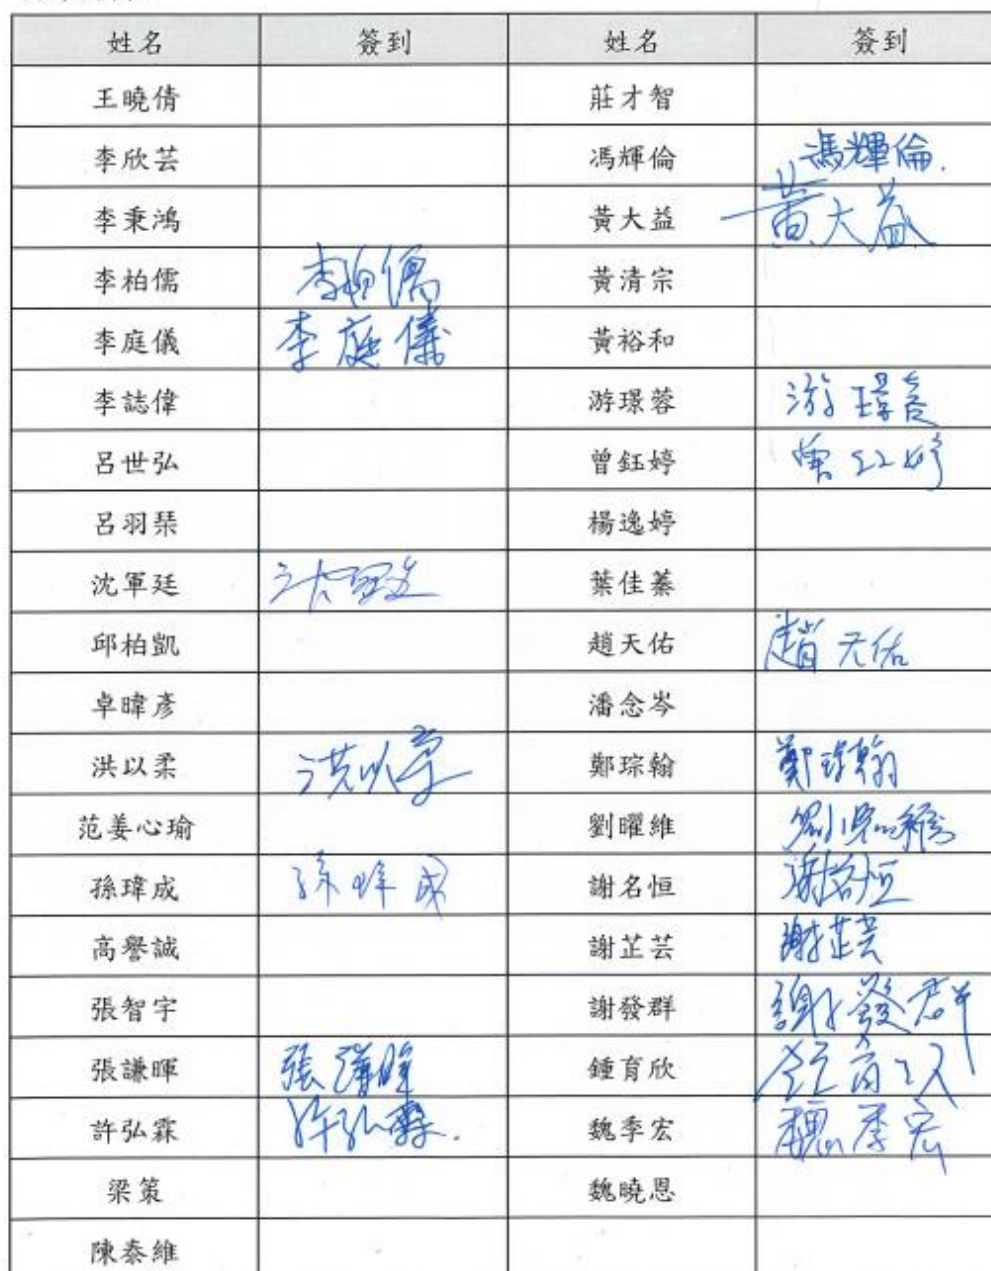 姓名 簽到 姓名 簽到
王曉倩 莊才智
李欣芸 馮輝倫 馮輝倫.
李秉鴻 黃大益 黃大益
李柏儒 李柏儒 黃清宗
李庭儀 李庭儀 黃裕和
李誌偉 游璟蓉 游璟蓉
呂世弘 曾鈺婷 曾鈺婷
呂羽琹 楊逸婷
沈軍廷 沈軍廷 葉佳蓁
邱柏凱 趙天佑 趙天佑
卓暐彥 潘念岑
洪以柔 洪以柔 鄭琮翰 鄭琮翰
范姜心瑜 劉曜維 劉曜維
孫瑋成 孫瑋成 謝名恒 謝名恒
高譽誠 謝芷芸 謝芷芸
張智宇 謝發群 謝發群
張謙暉 張謙暉 鍾育欣 鍾育欣
許弘霖 許弘霖. 魏季宏 魏季宏
梁策 魏曉恩
陳泰維